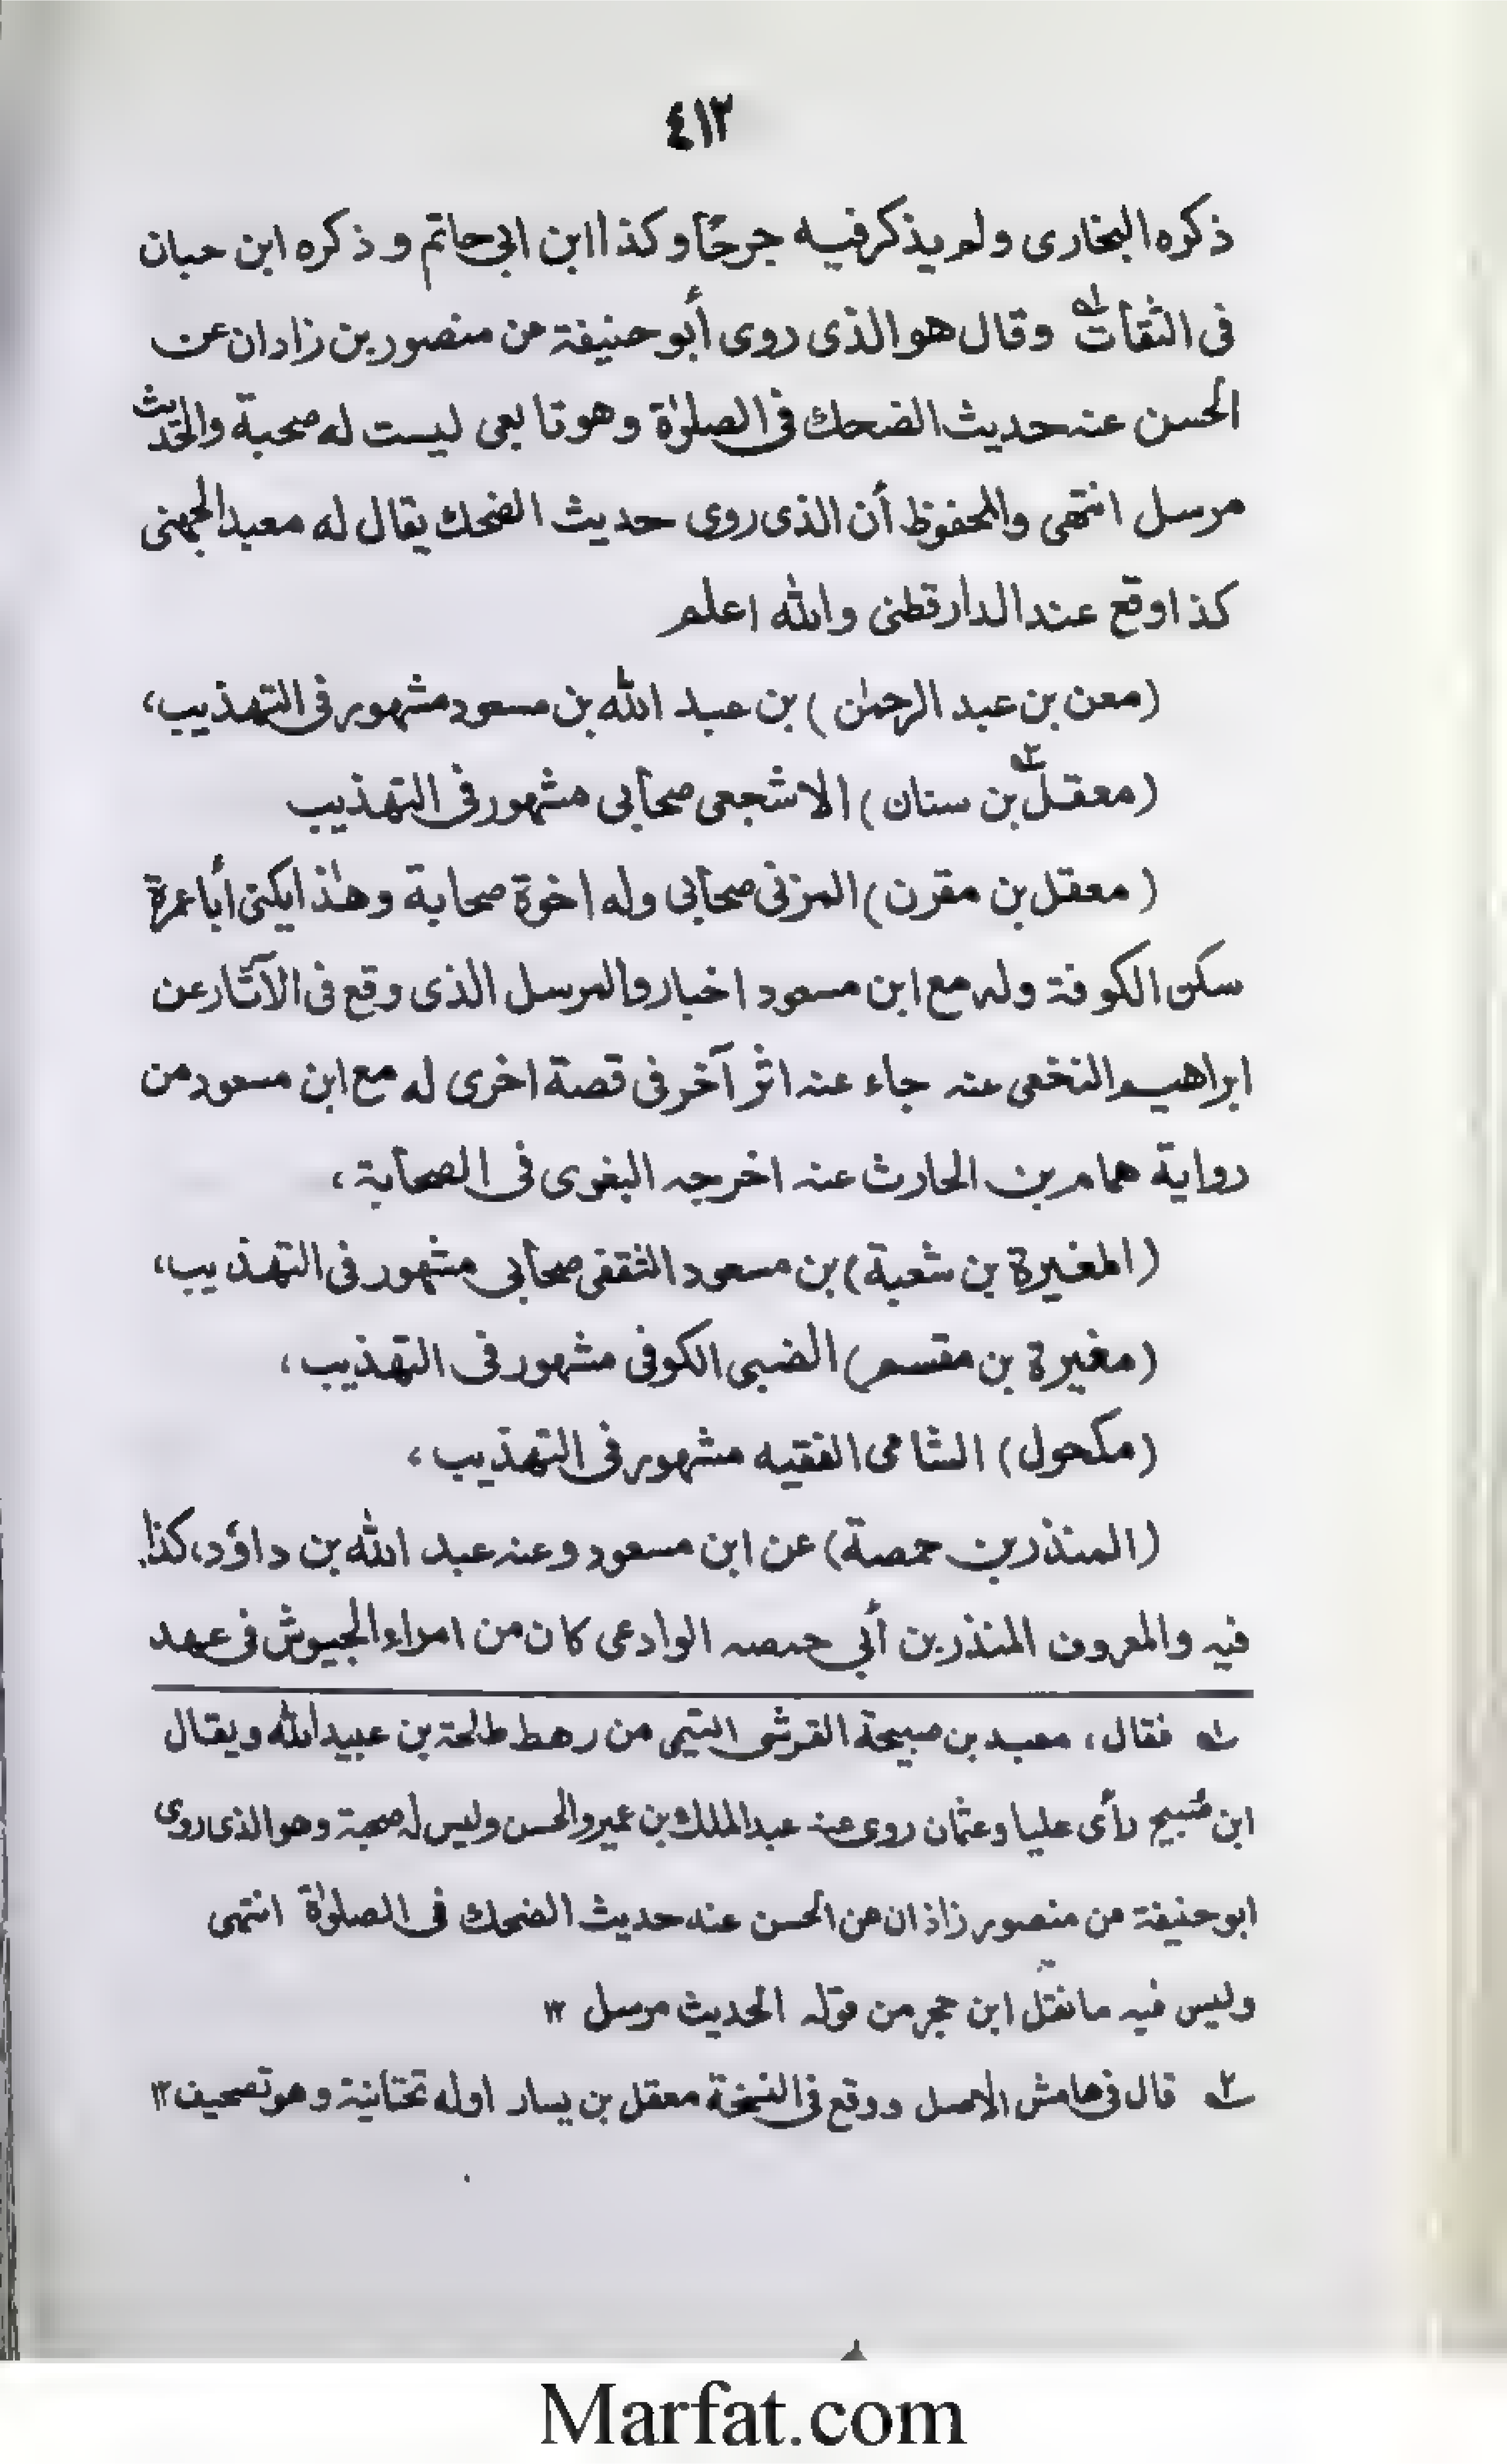 ٤١٢
ذكره البخارى ولم يذكر فيه جرحًا وكذا ابن ابى حاتم و ذكره ابن حبان
فى الثقات ١ـه وقال هو الذى روى أبو حنيفة عن منصور بن زادان عن
الحسن عنه حديث الضحك فى الصلوٰة وهو تابعى ليست له صحبة والحديث
مرسل انتهى والمحفوظ أن الذى روى حديث الضحك يقال له معبد الجهنى
كذا وقع عند الدارقطنى والله اعلم
(معن بن عبد الرحمٰن) بن عبد الله بن مسعود مشهور فى التهذيب،
(معقل ٢ـه بن سنان) الاشجعى صحابى مشهور فى التهذيب
(معقل بن مقرن) المزنى صحابى وله اخوة صحابة وهٰذا يكنى أبا عمرة
سكن الكوفة وله مع ابن مسعود اخبار والمرسل الذى وقع فى الآثار عن
ابراهيم النخعى عنه جاء عنه اثر آخر فى قصة اخرى له مع ابن مسعود من
رواية همام بن الحارث عنه اخرجه البغوى فى الصحابة،
(المغيرة بن شعبة) بن مسعود الثقفى صحابى مشهور فى التهذيب،
(مغيرة بن مقسم) الضبى الكوفى مشهور فى التهذيب،
(مكحول) الشامى الفقيه مشهور فى التهذيب،
(المنذر بن حمصة) عن ابن مسعود وعنه عبد الله بن داؤد، كذا
فيه والمعروف المنذر بن أبي حمصه الوادعى كان من امراء الجيوش فى عهد
١ـه فقال، معبد بن صبيحة القرشى التيمى من رهط طلحة بن عبيد الله ويقال
ابن صُبيح رأى عليا وعثمان روى عنه عبد الملك بن عمير والحسن وليس له صحبة وهو الذى روى
ابو حنيفة عن منصور زاذان عن الحسن عنه حديث الضحك فى الصلوٰة انتهى
وليس فيه ما نقل ابن حجر من قوله الحديث مرسل ١٢
٢ـه قال فى هامش الاصل ووقع فى النسخة معقل بن يسار اوله تحتانية وهو تصحيف ١٢
Marfat.com